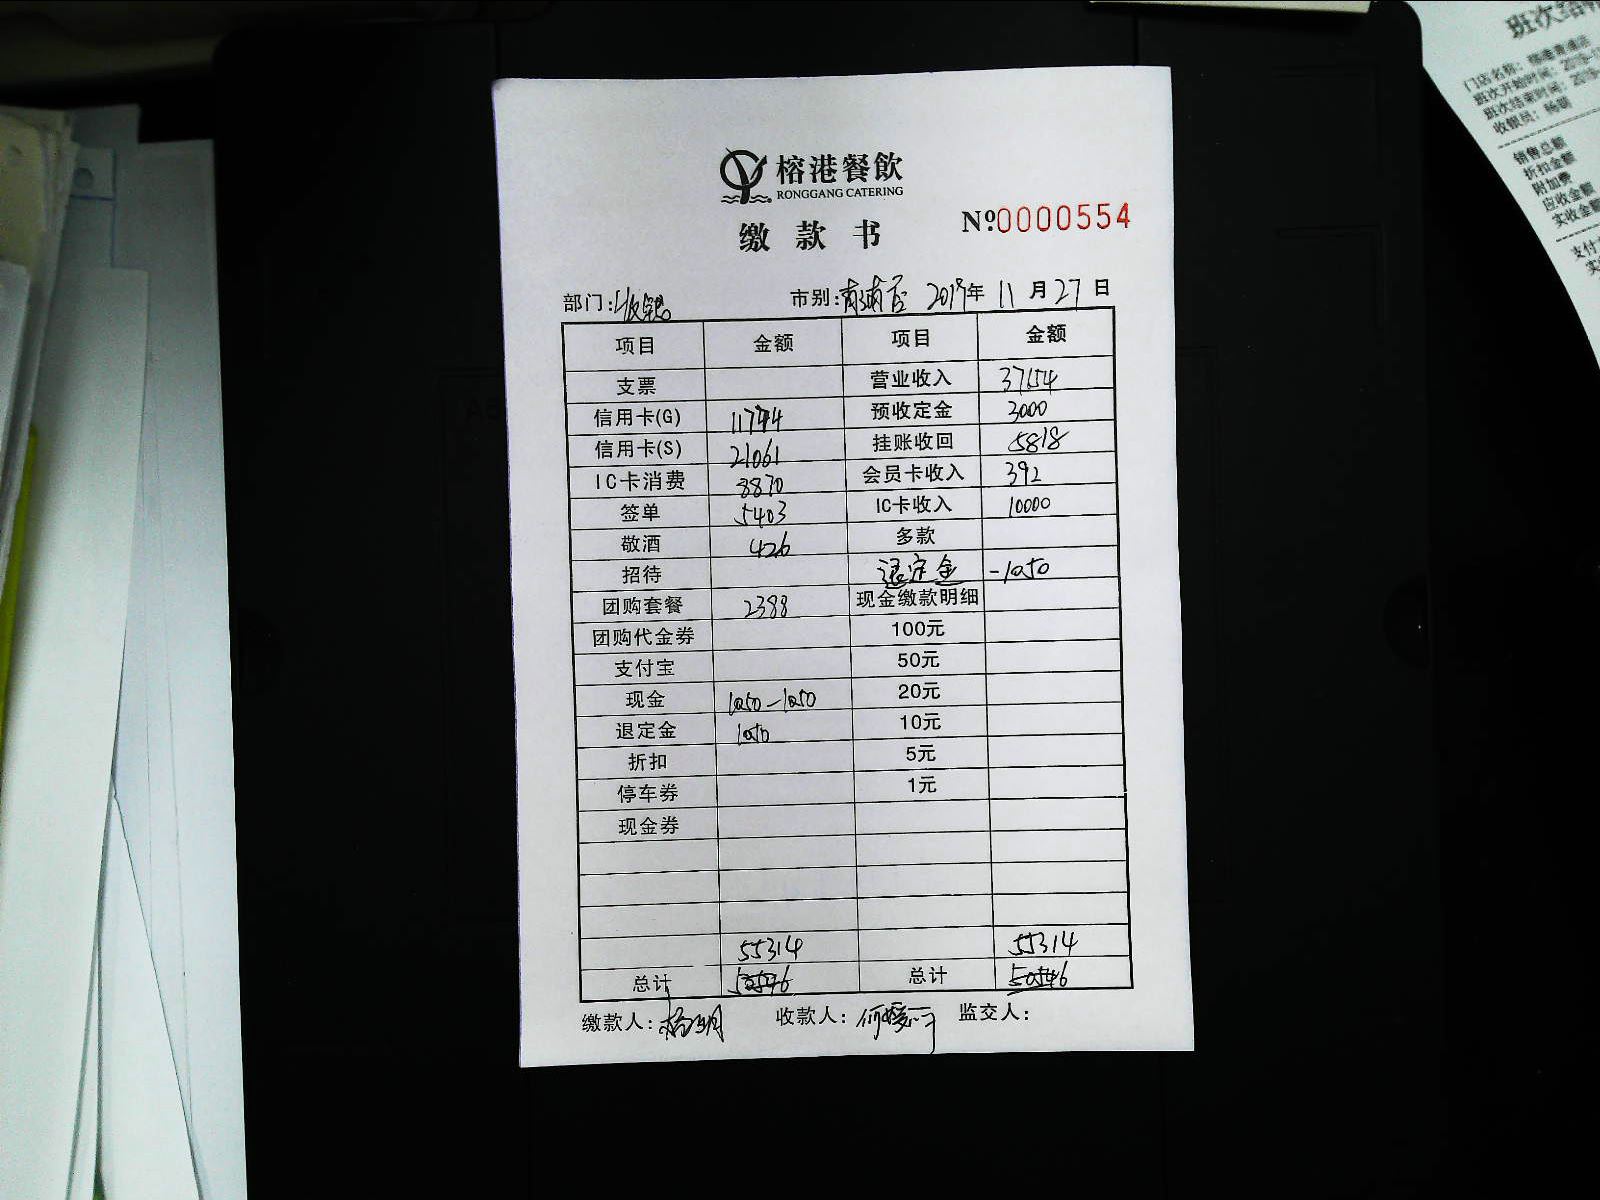 榕港餐飲
RONGGANG CATERING
缴款书 №0000554
部门:收银 市别:青浦店 2019年 11月27日
项目 金额 项目 金额
支票 营业收入 37154
信用卡(G) 预收定金 3000
信用卡(S) 21061 挂账收回 5818
IC卡消费 8870 会员卡收入 392
签单 5403 IC卡收入 10000
敬酒 426 多款
招待 退定金 -1050
团购套餐 2388 现金缴款明细
团购代金券 100元
支付宝 50元
现金 1050-1050 20元
退定金 1050 10元
折扣 5元
停车券 1元
现金券
55314 55314
总计 总计
缴款人: 收款人: 监交人:
班次结
门店名称:
班次开始时间:
班次结束时间:
收银员:
销售总额
折扣金额
附加费
应收金额
实收金额
支付